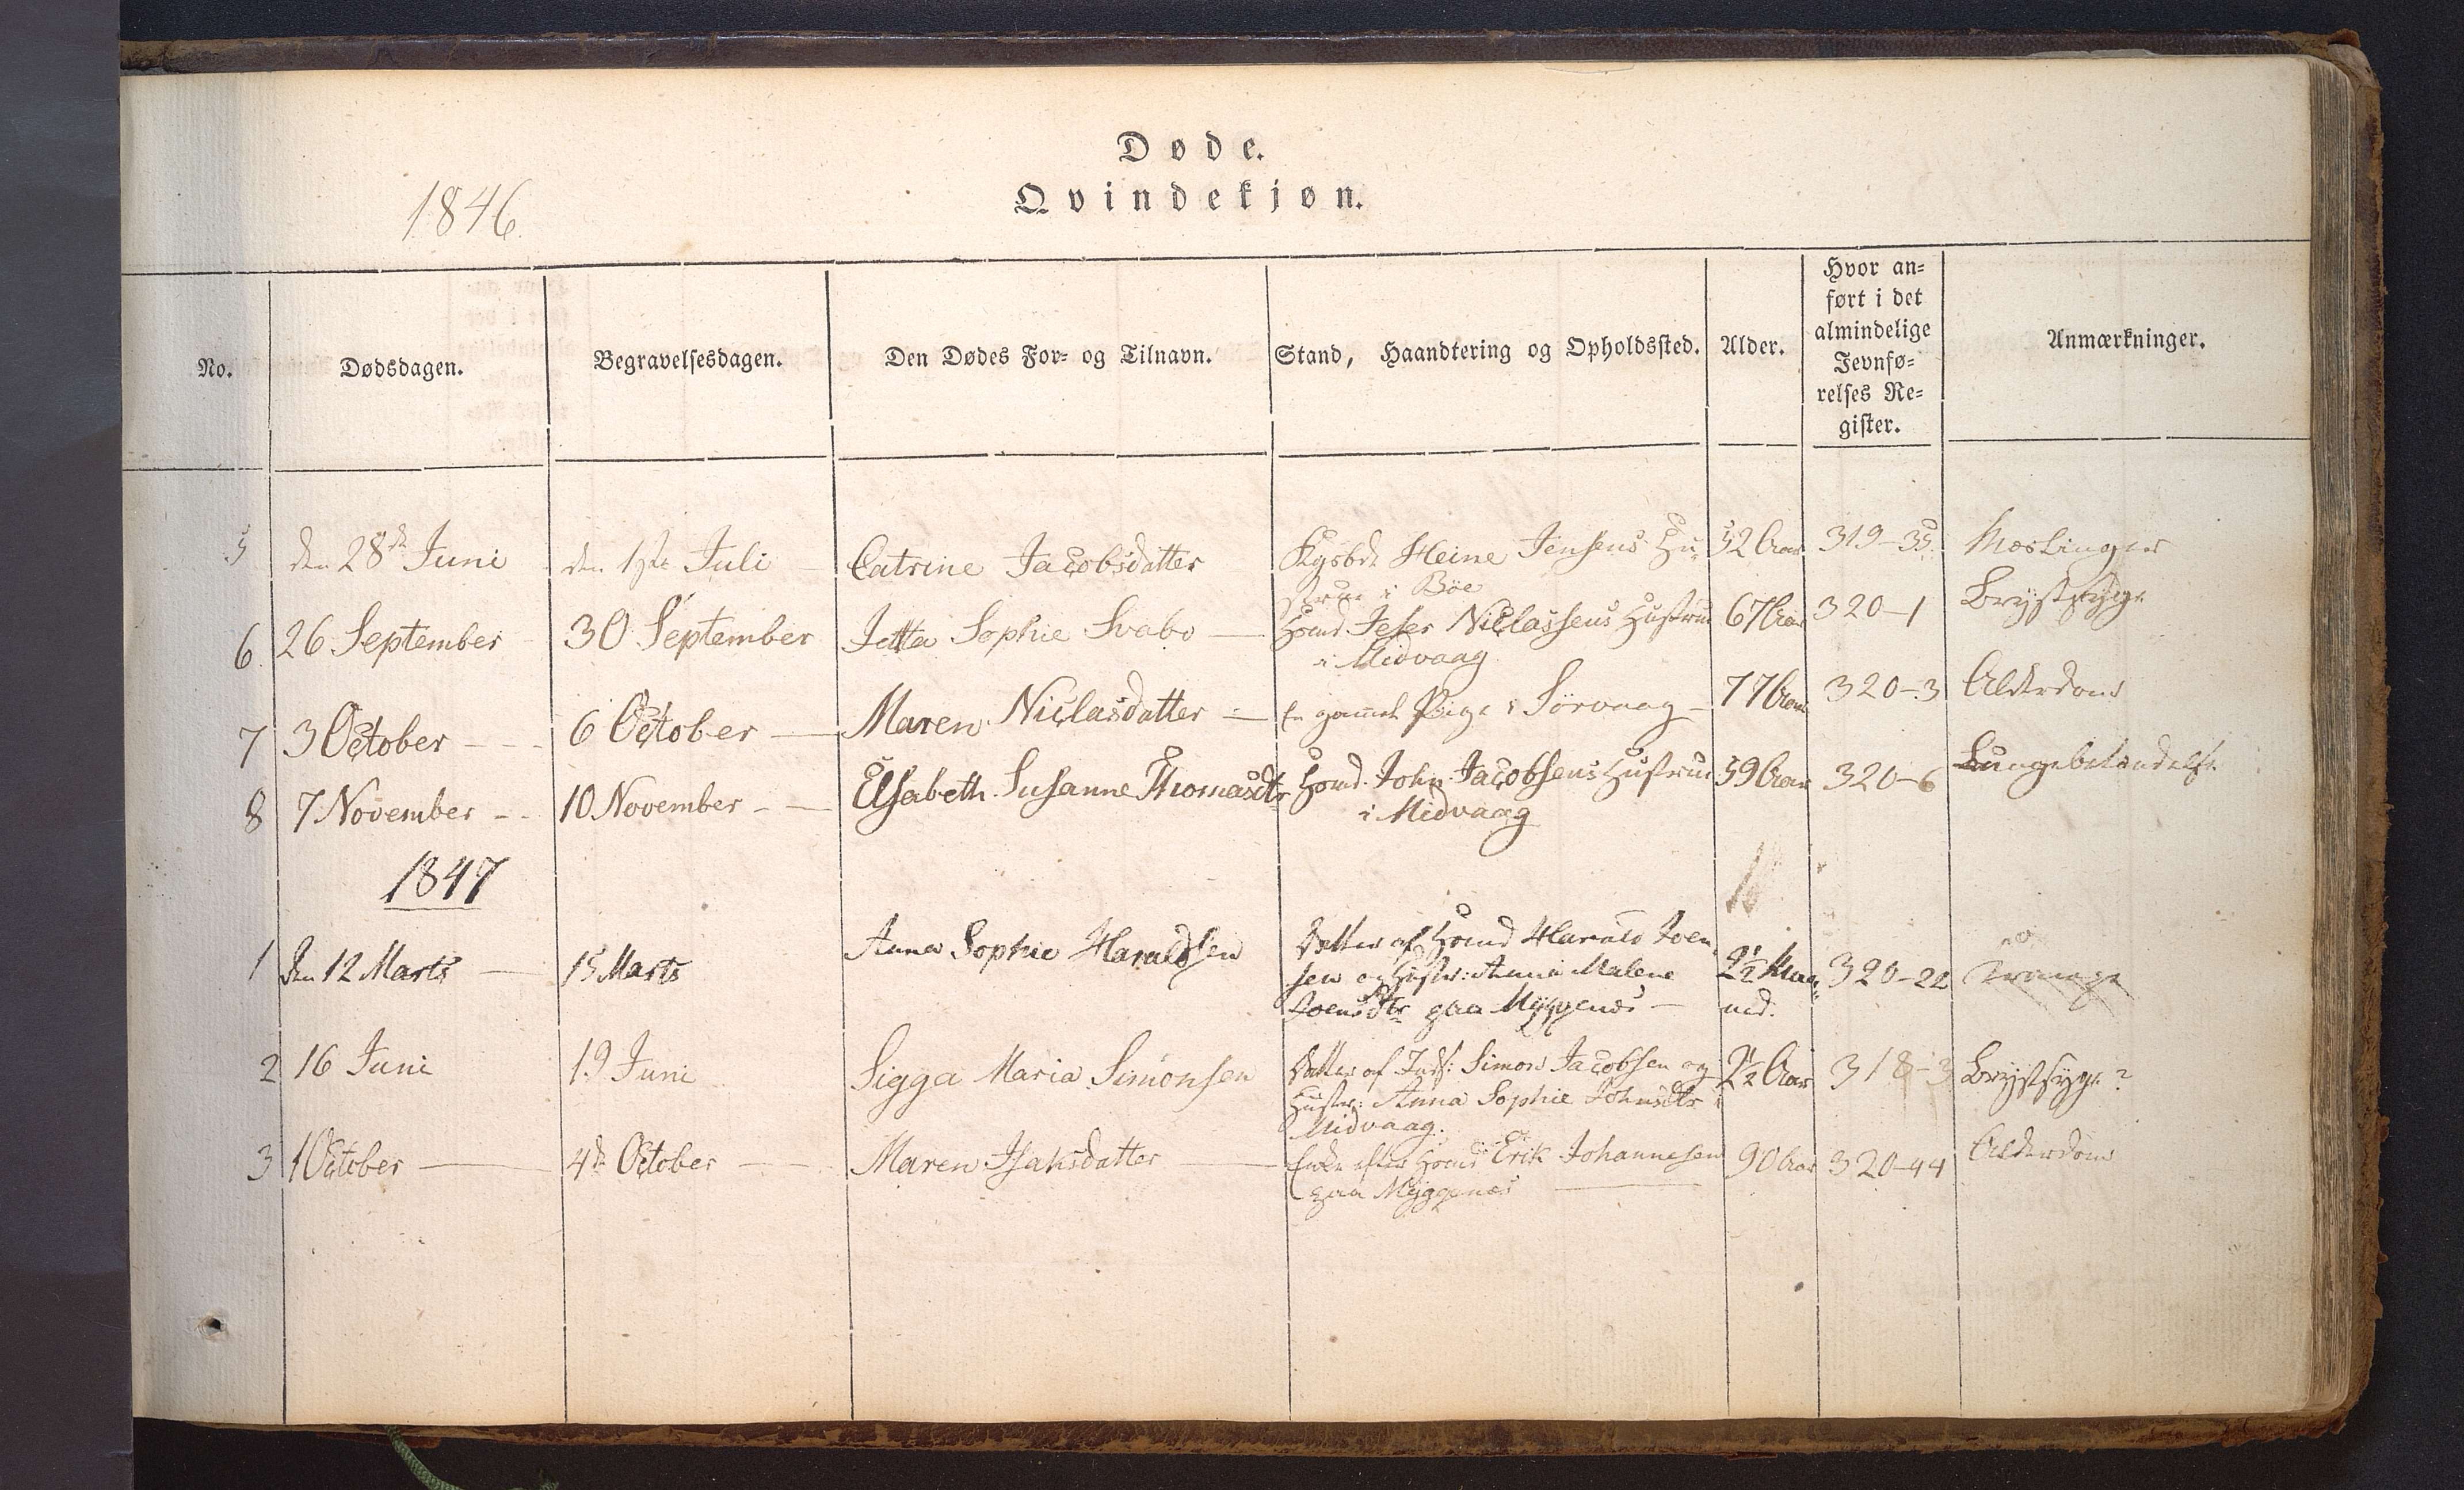 Døde.
Qvindekjøn.
1846.
No. Dødsdagen. Begravelsesdagen. Den Dødes For- og Tilnavn. Stand, Haandtering og Opholdssted. Alder. Hvor an-
ført i det
almindelige
Jevnfø-
relses Re-
gister. Anmærkninger.
5 den 28de Juni den 1ste Juli Catrine Jacobsdatter Kgsbd. Heine Jensens Hu- 52 Aar 319-35. Mæslinger
strue i Böe
6. 26 September 30 September Jetta Sophie Svabo Hosmd Peter Niclassens Hustrue 67 Aar 320-1 Brystsyge
i Midvaag
7 3 October 6 October Maren Niclasdatter En gammel Pige i Sörvaag 77 Aar 320-3 Alderdom
8 7 November 10 November Elsabeth Susanne Thomasdtr Hosmd. John Jacobsens Hustrue 39 Aar 320-6 Lungebetændelse
i Midvaag
1847
1 den 12 Marts 15 Marts Anna Sophie Haraldsen Datter af Hosmd Harald Joen-
sen og Hustr: Anna Malene 2½ Maa- 320-22
Joensdtr paa Myggenæs ned.
2 16 Juni 19 Juni Sigga Maria Simonsen Datter af Inds: Simon Jacobsen og 2½ Aar 318-3 Brystsyge?
Hustr: Anna Sophie Johnsdtr i
Midvaag.
3 1 October 4de October Maren Isaksdatter Enke efter Hosmd Erik Johannesen 90 Aar 320-44 Alderdom
paa Myggenæs